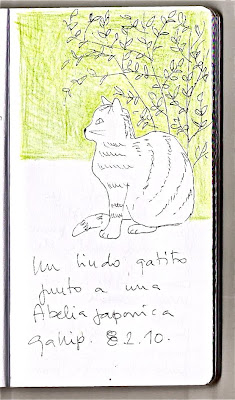 Un lindo gatito
junto a una
Abelia japonica
8.2.10.